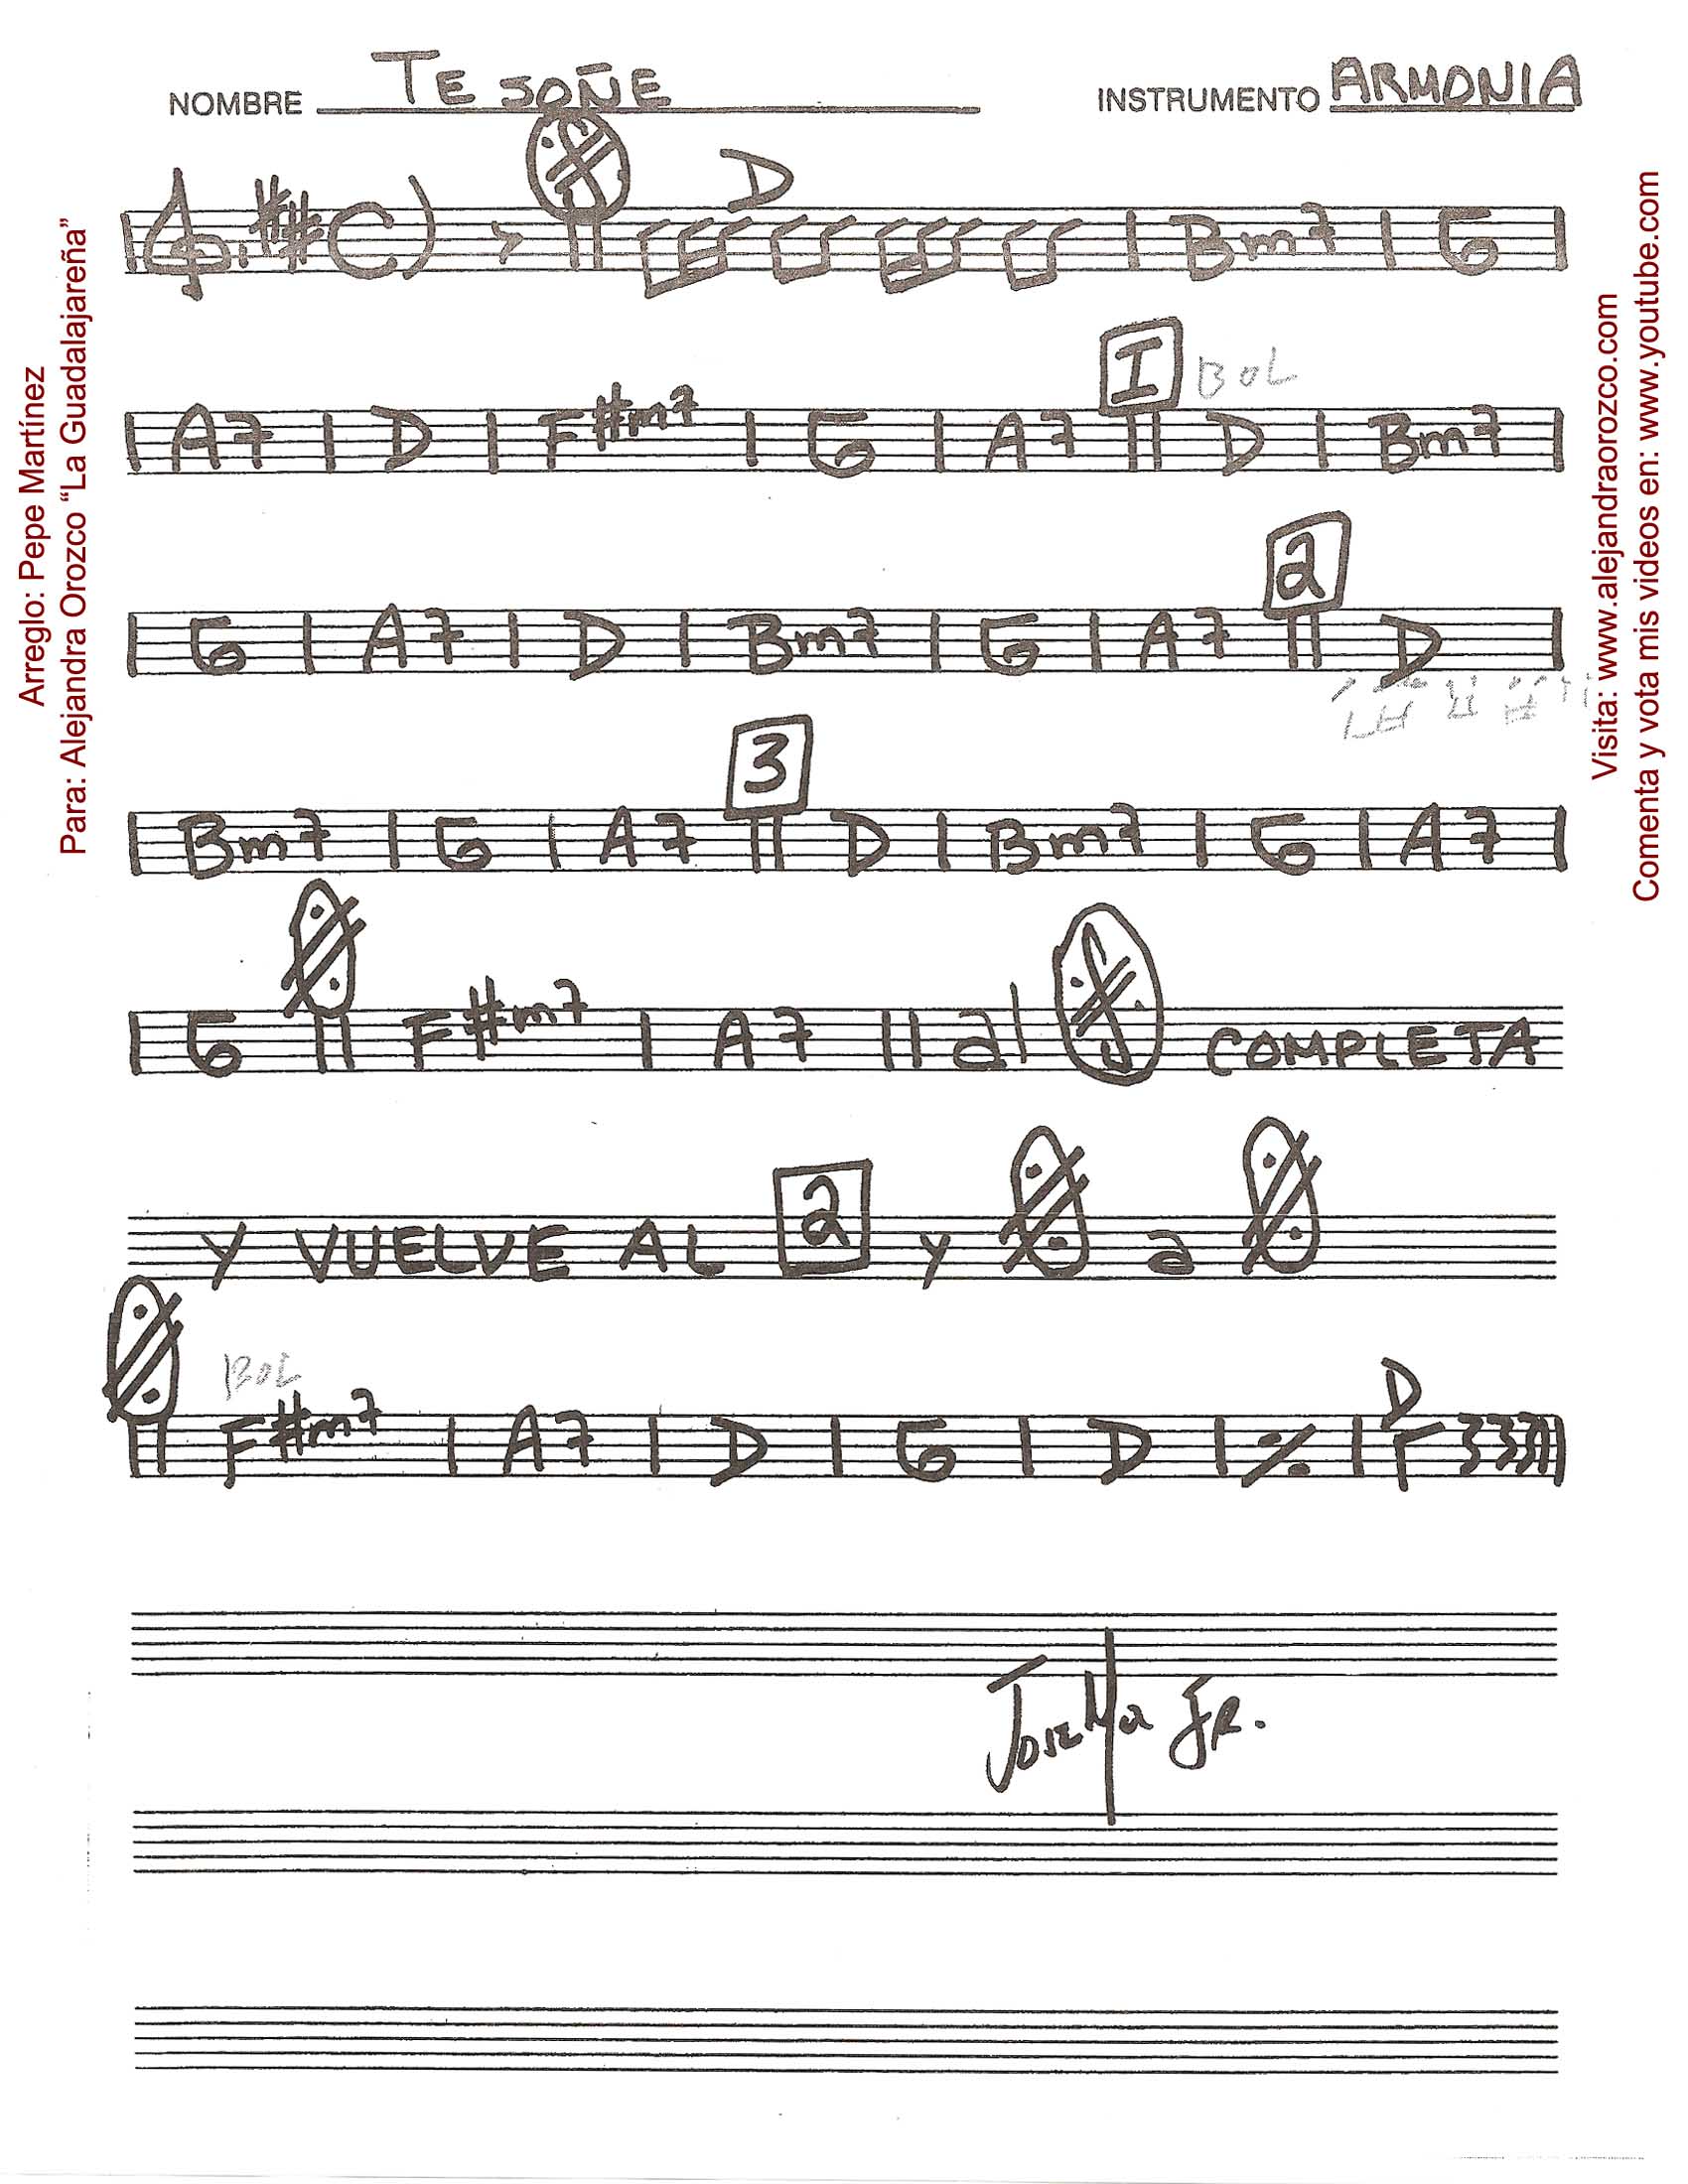 NOMBRE TE SOÑE INSTRUMENTO ARMONIA
D
Bm7 G
I BOL
A7 D F#m7 G A7 D Bm7
2
G A7 D Bm7 G A7 D
3
Bm7 G A7 D Bm7 G A7
G F#m7 A7 al COMPLETA
Y VUELVE AL 2 y a
BOL D
F#m7 A7 D G D
Jose Ma Jr.
Arreglo: Pepe Martínez
Para: Alejandra Orozco “La Guadalajareña”
Visita: www.alejandraorozco.com
Comenta y vota mis videos en: www.youtube.com